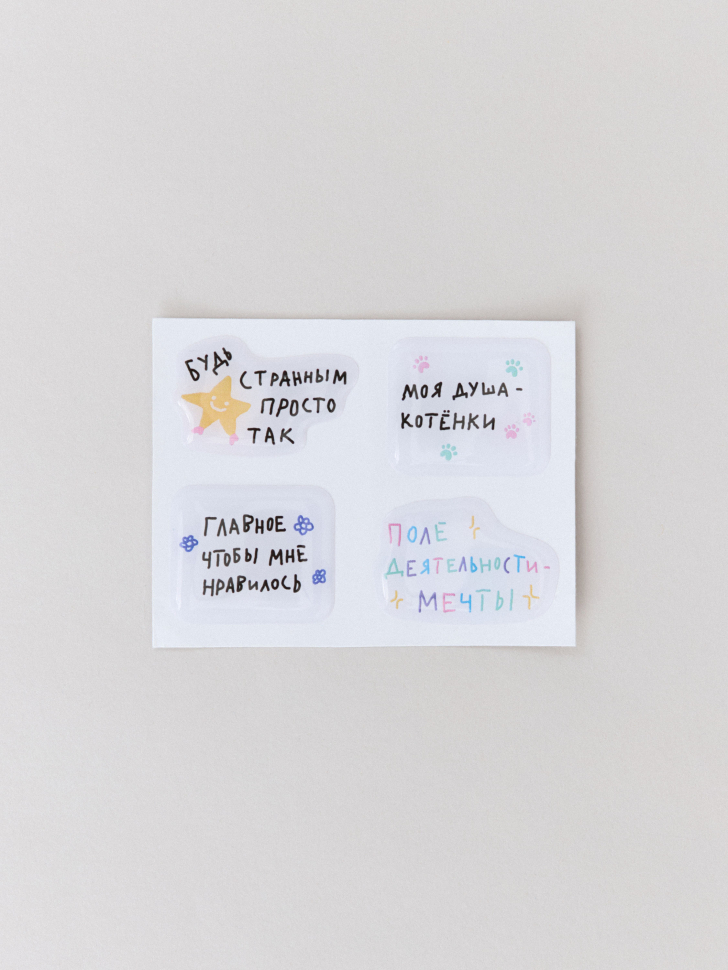 БУДЬ
СТРАННЫМ
ПРОСТО
ТАК
МОЯ ДУША -
КОТЁНКИ
ГЛАВНОЕ
ЧТОБЫ МНЕ
НРАВИЛОСЬ
ПОЛЕ
ДЕЯТЕЛЬНОСТИ -
МЕЧТЫ